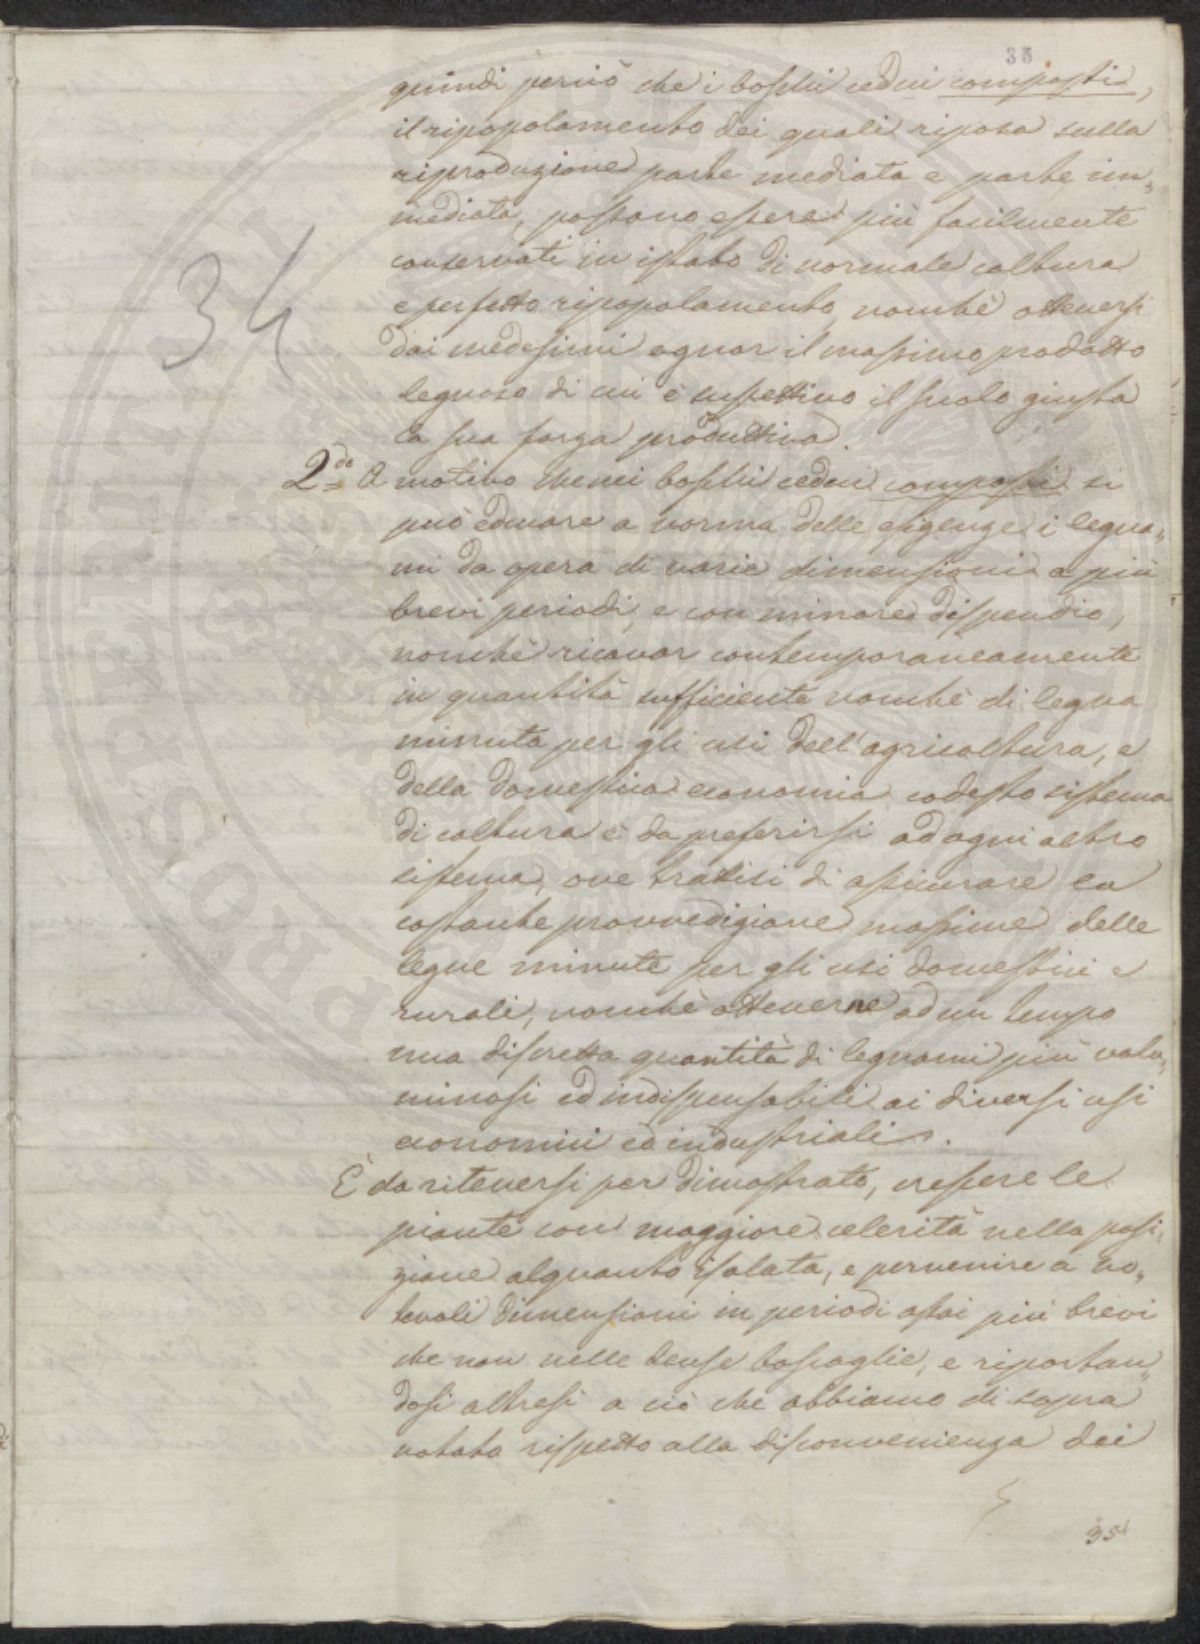 33
quindi perciò che i boschi cedui composti,
il ripopolamento dei quali riposa sulla
riproduzione parte mediata e parte im„
mediata, possano essere più facilmente
conservati in istato di normale coltura
e perfetto ripopolamento, nonchè ottenersi
dai medesimi ognor il massimo prodotto
legnoso di cui è suscettivo il suolo giusta
la sua forza produttiva.
34
2do A motivo che nei boschi cedui composti si
può educare a norma delle esigenze i legna„
mi da opera di varie dimensioni a più
brevi periodi, e con minore dispendio,
nonchè ricavar contemporaneamente
in quantità sufficiente nonchè di legna
minuta per gli usi dell'agricoltura, e
della domestica economia codesto sistema
di coltura è da preferirsi ad ogni altro
sistema, ove trattisi di assicurare la
costante provvedigione massime delle
legne minute per gli usi domestici e
rurali, nonchè ottenerne ad un tempo
una discretta quantità di legnami più volu„
minosi ed indispensabili ai diversi usi
economici ed industriali.
È da ritenersi per dimostrato, crescere le
piante con maggiore celerità nella posi„
zione alquanto isolata, e pervenire a no„
tevoli dimensioni in periodi assai più brevi
che non nelle dense boscaglie, e riportan„
dosi altresi a ciò che abbiamo di sopra
notato rispetto alla disconvenienza dei
35
PROSPERITATI PUBLICAE